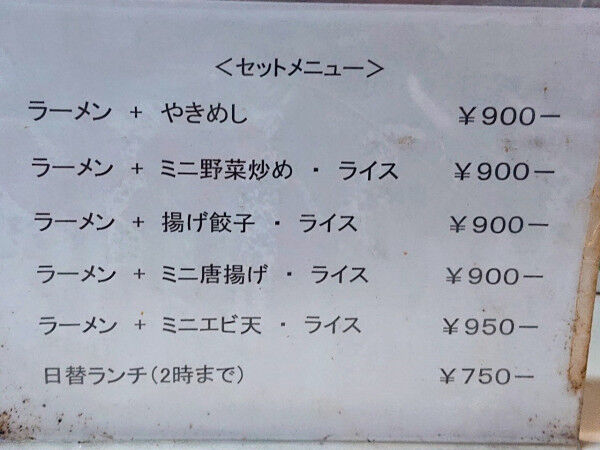 ＜セットメニュー＞
ラーメン + やきめし ￥900－
ラーメン + ミニ野菜炒め ・ ライス ￥900－
ラーメン + 揚げ餃子 ・ ライス ￥900－
ラーメン + ミニ唐揚げ ・ ライス ￥900－
ラーメン + ミニエビ天 ・ ライス ￥950－
日替ランチ（2時まで） ￥750－